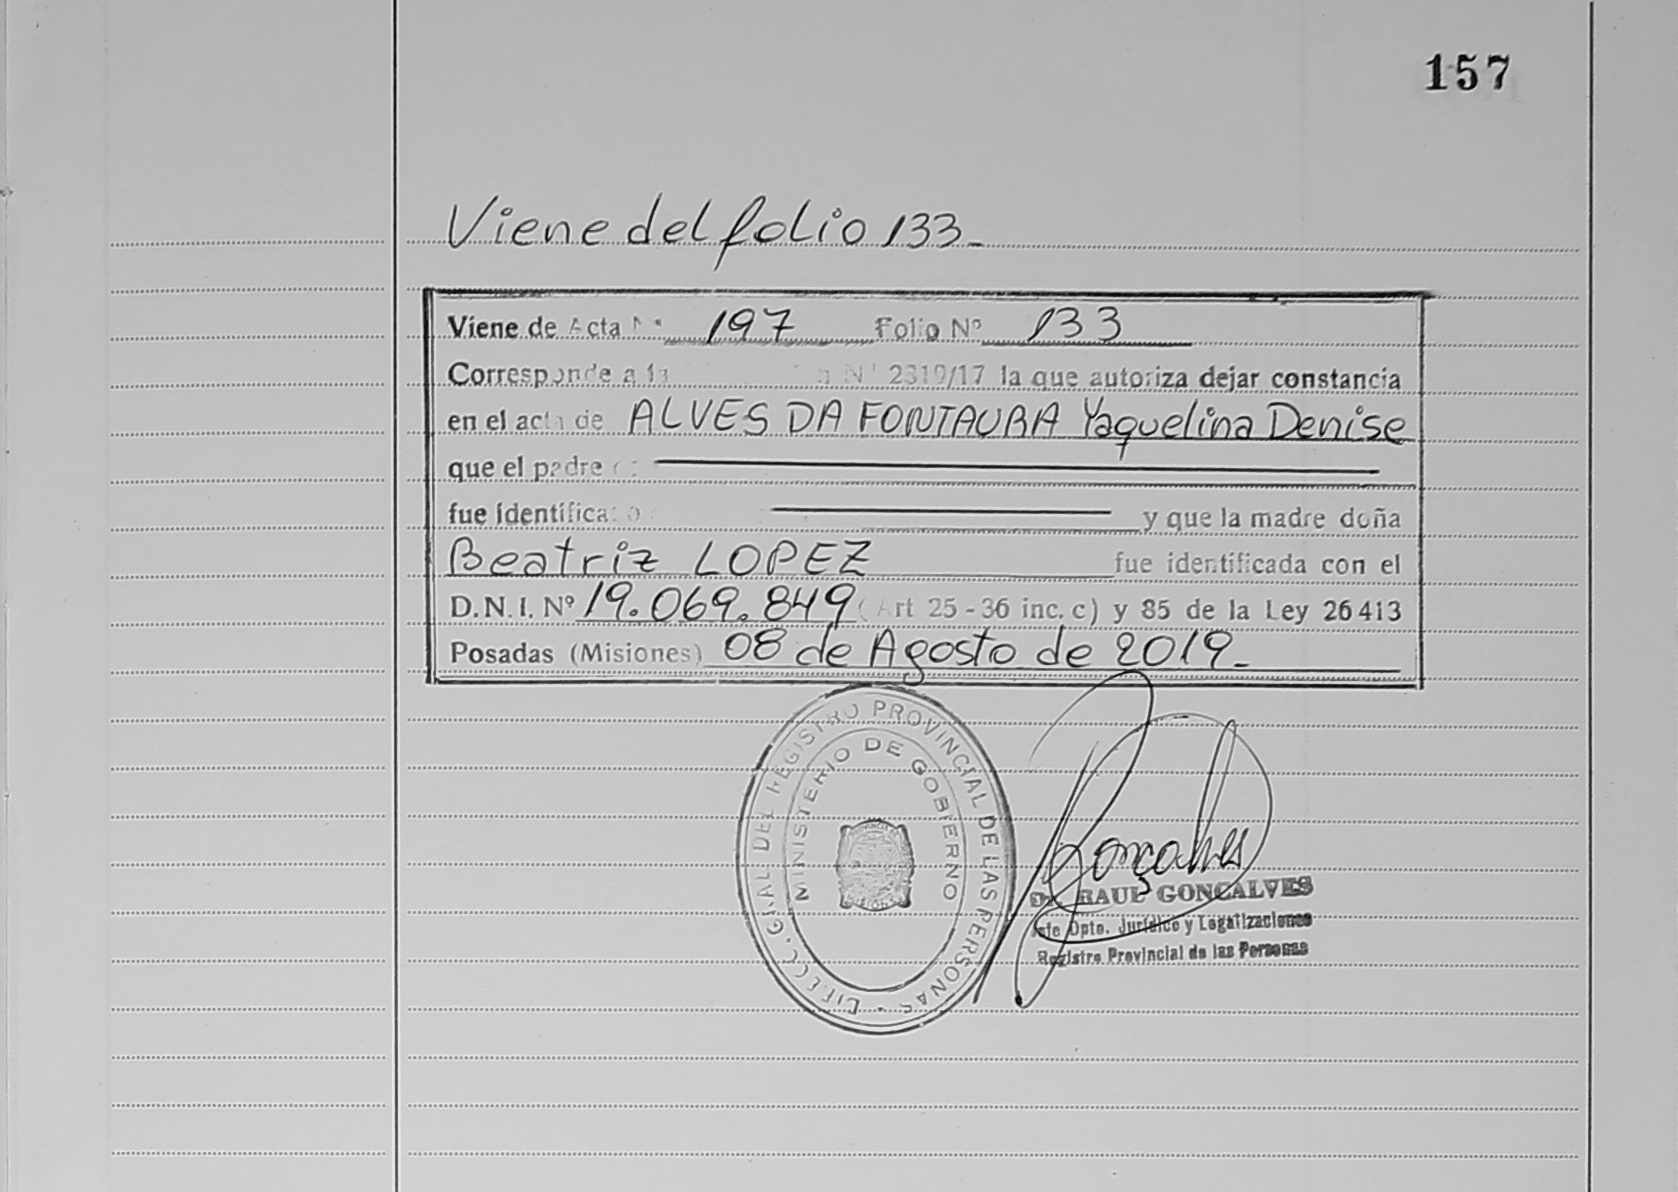 157
Viene del folio 133-
Viene de Acta N° 197 Folio Nº 133
Corresponde a la N° 2319/17 la que autoriza dejar constancia
en el acta de ALVES DA FONTAURA Yaquelina Denise
que el padre
fue identificado y que la madre doña
Beatriz LOPEZ fue identificada con el
D.N.I. Nº 19.069.849 (Art 25 - 36 inc. c) y 85 de la Ley 26413
Posadas (Misiones) 08 de Agosto de 2019-
GRAL DEL REGISTRO PROVINCIAL DE LAS PERSONAS -
MINISTERIO DE GOBIERNO
Gonçalves
Dr. RAUL GONCALVES
Jefe Dpto. Jurídico y Legalizaciones
Registro Provincial de las Personas